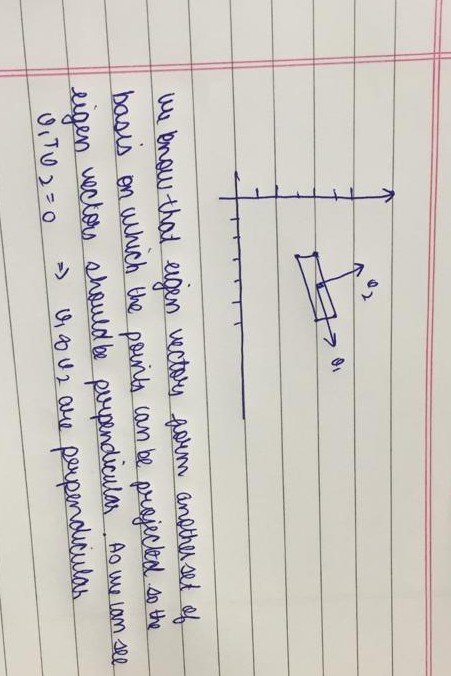 v2
v1
we know that eigen vectors form another set of
basis on which the points can be projected. so the
eigen vectors should be perpendicular. As we can see
v1ᵀv2 = 0 ⇒ v1 & v2 are perpendicular